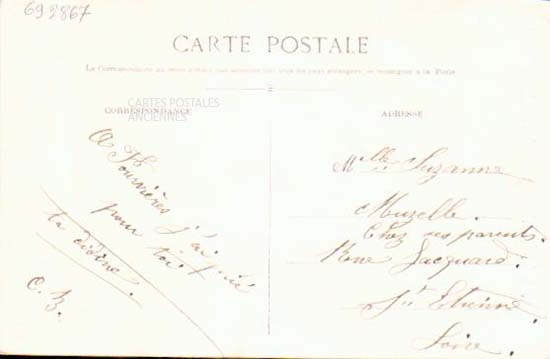 692867
CARTE POSTALE
La Correspondance au recto n'est pas acceptée par tous les pays étrangers, se renseigner à la Poste
CORRESPONDANCE
CARTES POSTALES
ANCIENNES
A Fourvières j'ai prié
pour toi
ta didine
C. B.
ADRESSE
Mlle Suzanne
Muzelle.
Chez ses parents.
Rue Jacquard.
St Etienne
Loire.